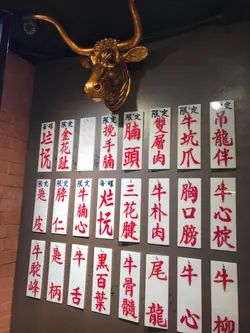 烂㤺
限定
金花趾
限定
挽手腩
限定
腩頭
限定
雙層肉
限定
牛坑爪
限定
吊龍伴
限定
匙皮
限定
脖仁
限定
牛腩心
烂㤺
三花腱
牛朴肉
胸口膀
牛心椗
牛駝峰
匙柄
牛舌
黑百葉
牛骨髓
尾龍
牛心
牛柳